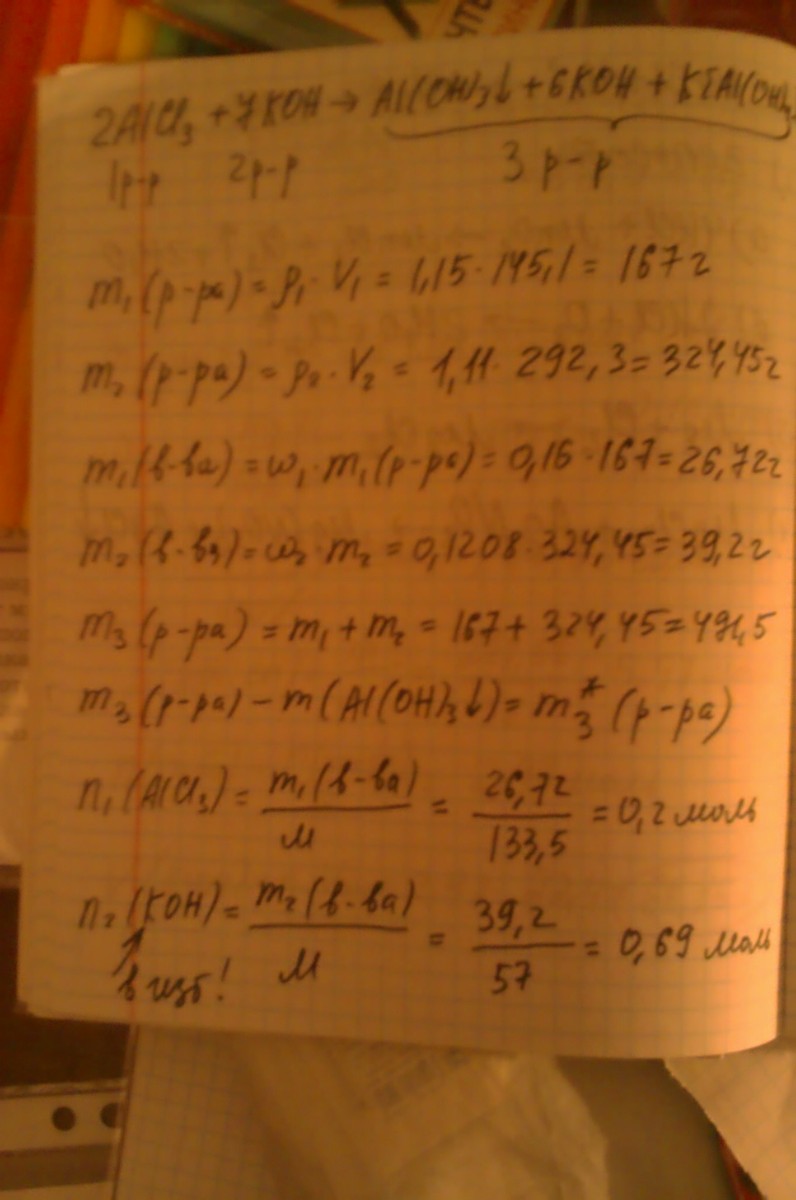 ЧТЕ
2AlCl₃ + 7KOH → Al(OH)₃↓ + 6KOH + K[Al(OH)
1р-р 2р-р 3 р-р
m₁(р-ра) = ρ₁·V₁ = 1,15·145,1 = 167г
m₂(р-ра) = ρ₂·V₂ = 1,11·292,3 = 324,45г
m₁(в-ва) = ω₁·m₁(р-ра) = 0,16·167 = 26,72г
m₂(в-ва) = ω₂·m₂ = 0,1208·324,45 = 39,2г
m₃(р-ра) = m₁ + m₂ = 167 + 324,45 = 491,5
m₃(р-ра) - m(Al(OH)₃↓) = m₃*(р-ра)
n₁(AlCl₃) = m₁(в-ва)/M = 26,72/133,5 = 0,2 моль
n₂(KOH) = m₂(в-ва)/M = 39,2/57 = 0,69 моль
в изб!